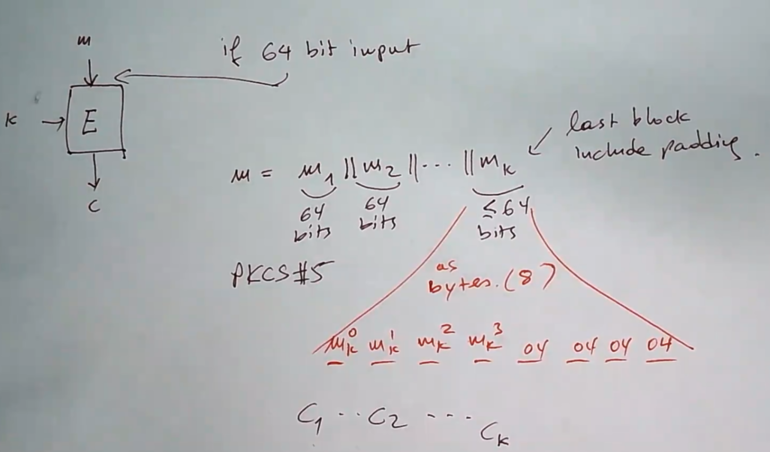 m
if 64 bit input
k
E
c
last block
include padding.
m = m1 || m2 || ... || mk
64 bits
64 bits
≤64 bits
PKCS#5
as
bytes. (8)
mk^0 mk^1 mk^2 mk^3 04 04 04 04
C1 .. C2 ... Ck